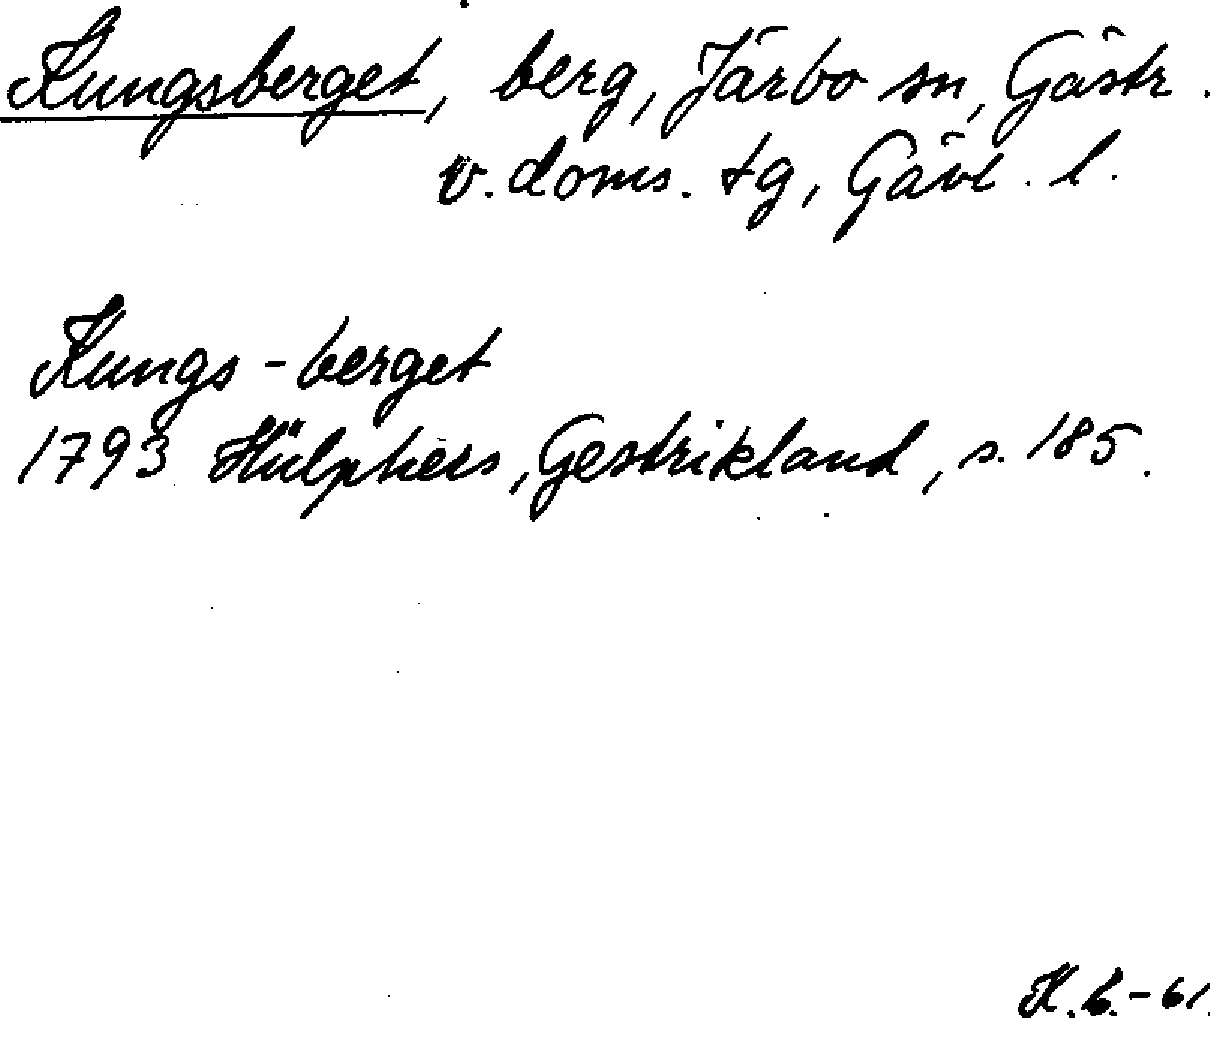 Kungsberget, berg, Järbo sn, Gästr.
v. doms. tg, Gävl. l.
Kungs-berget
1793 Hülphers, Gestrikland, s. 185.
K.G.-61.